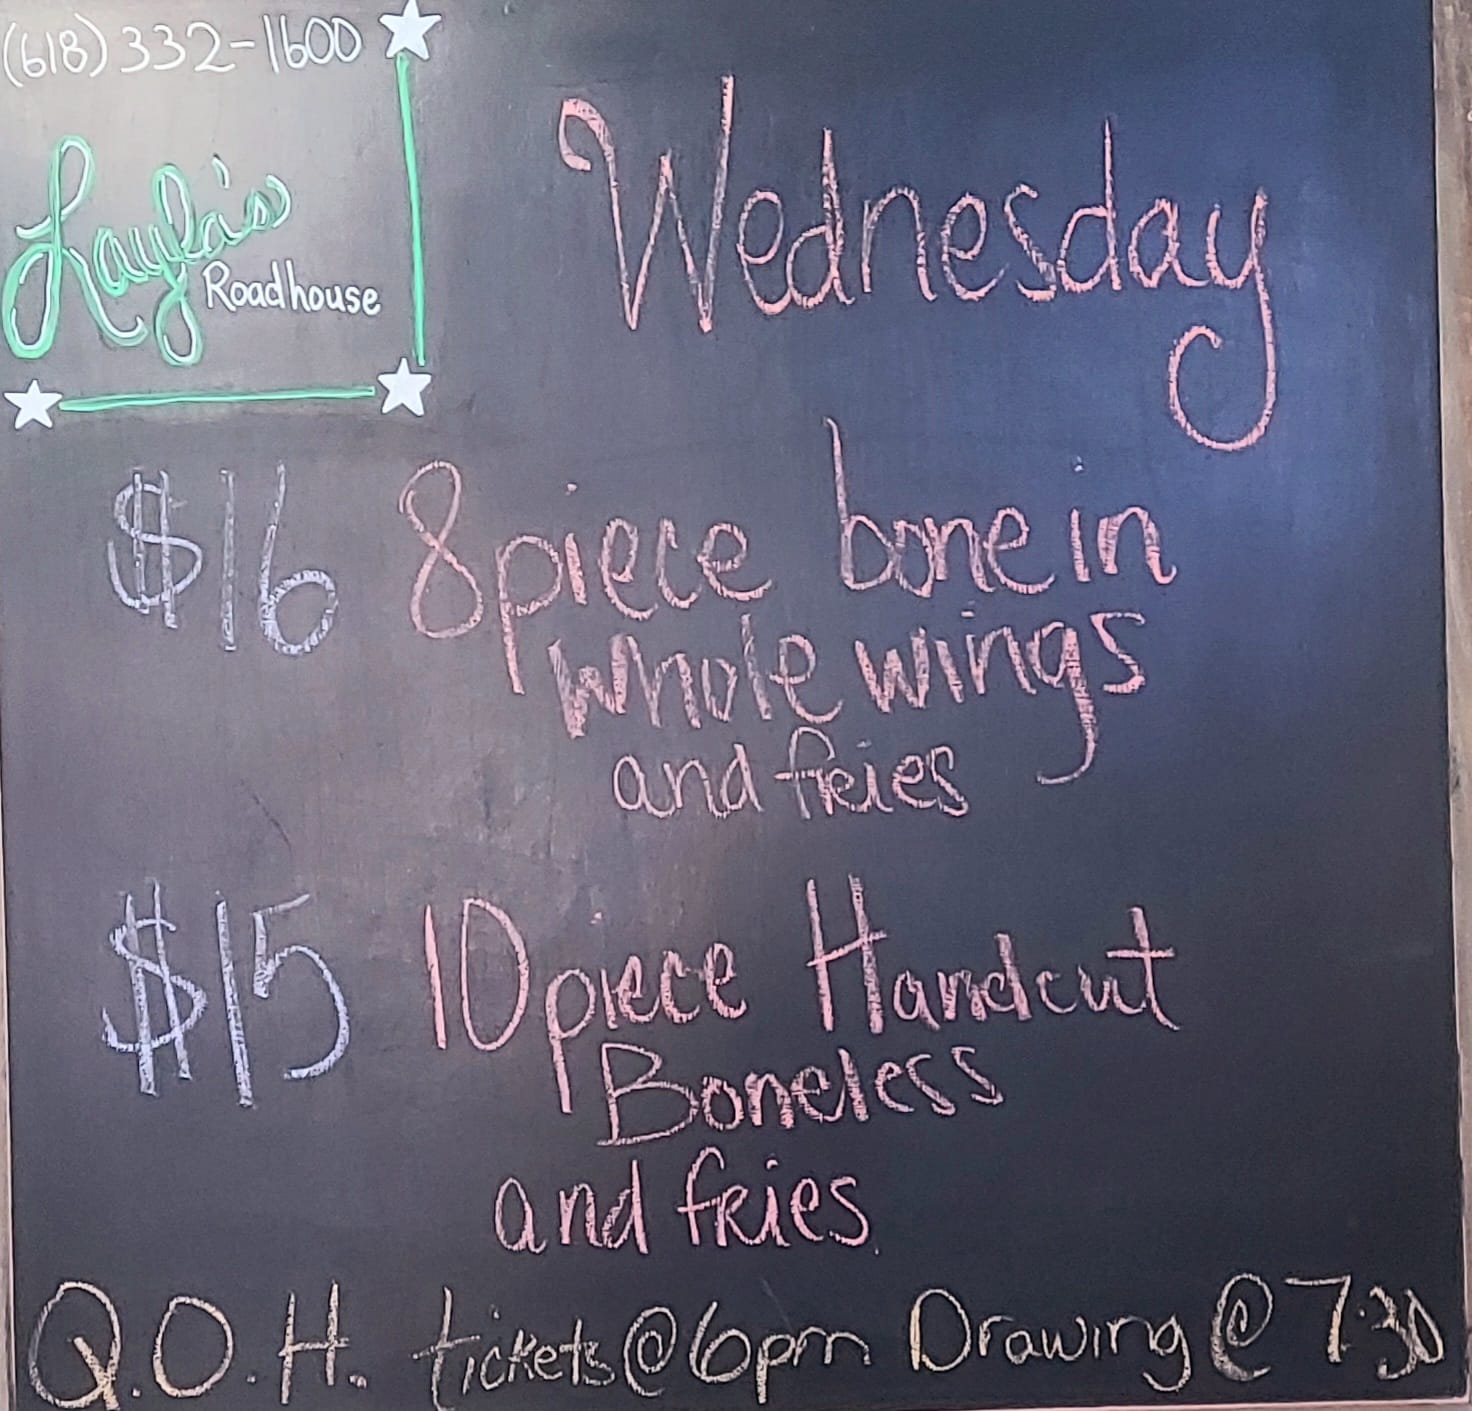 (618) 332-1600
Layla's
Roadhouse
Wednesday
$16 8 piece bone in
whole wings
and fries
$15 10 piece Handcut
Boneless
and fries
Q.O.H. tickets @ 6pm Drawing @ 7:30